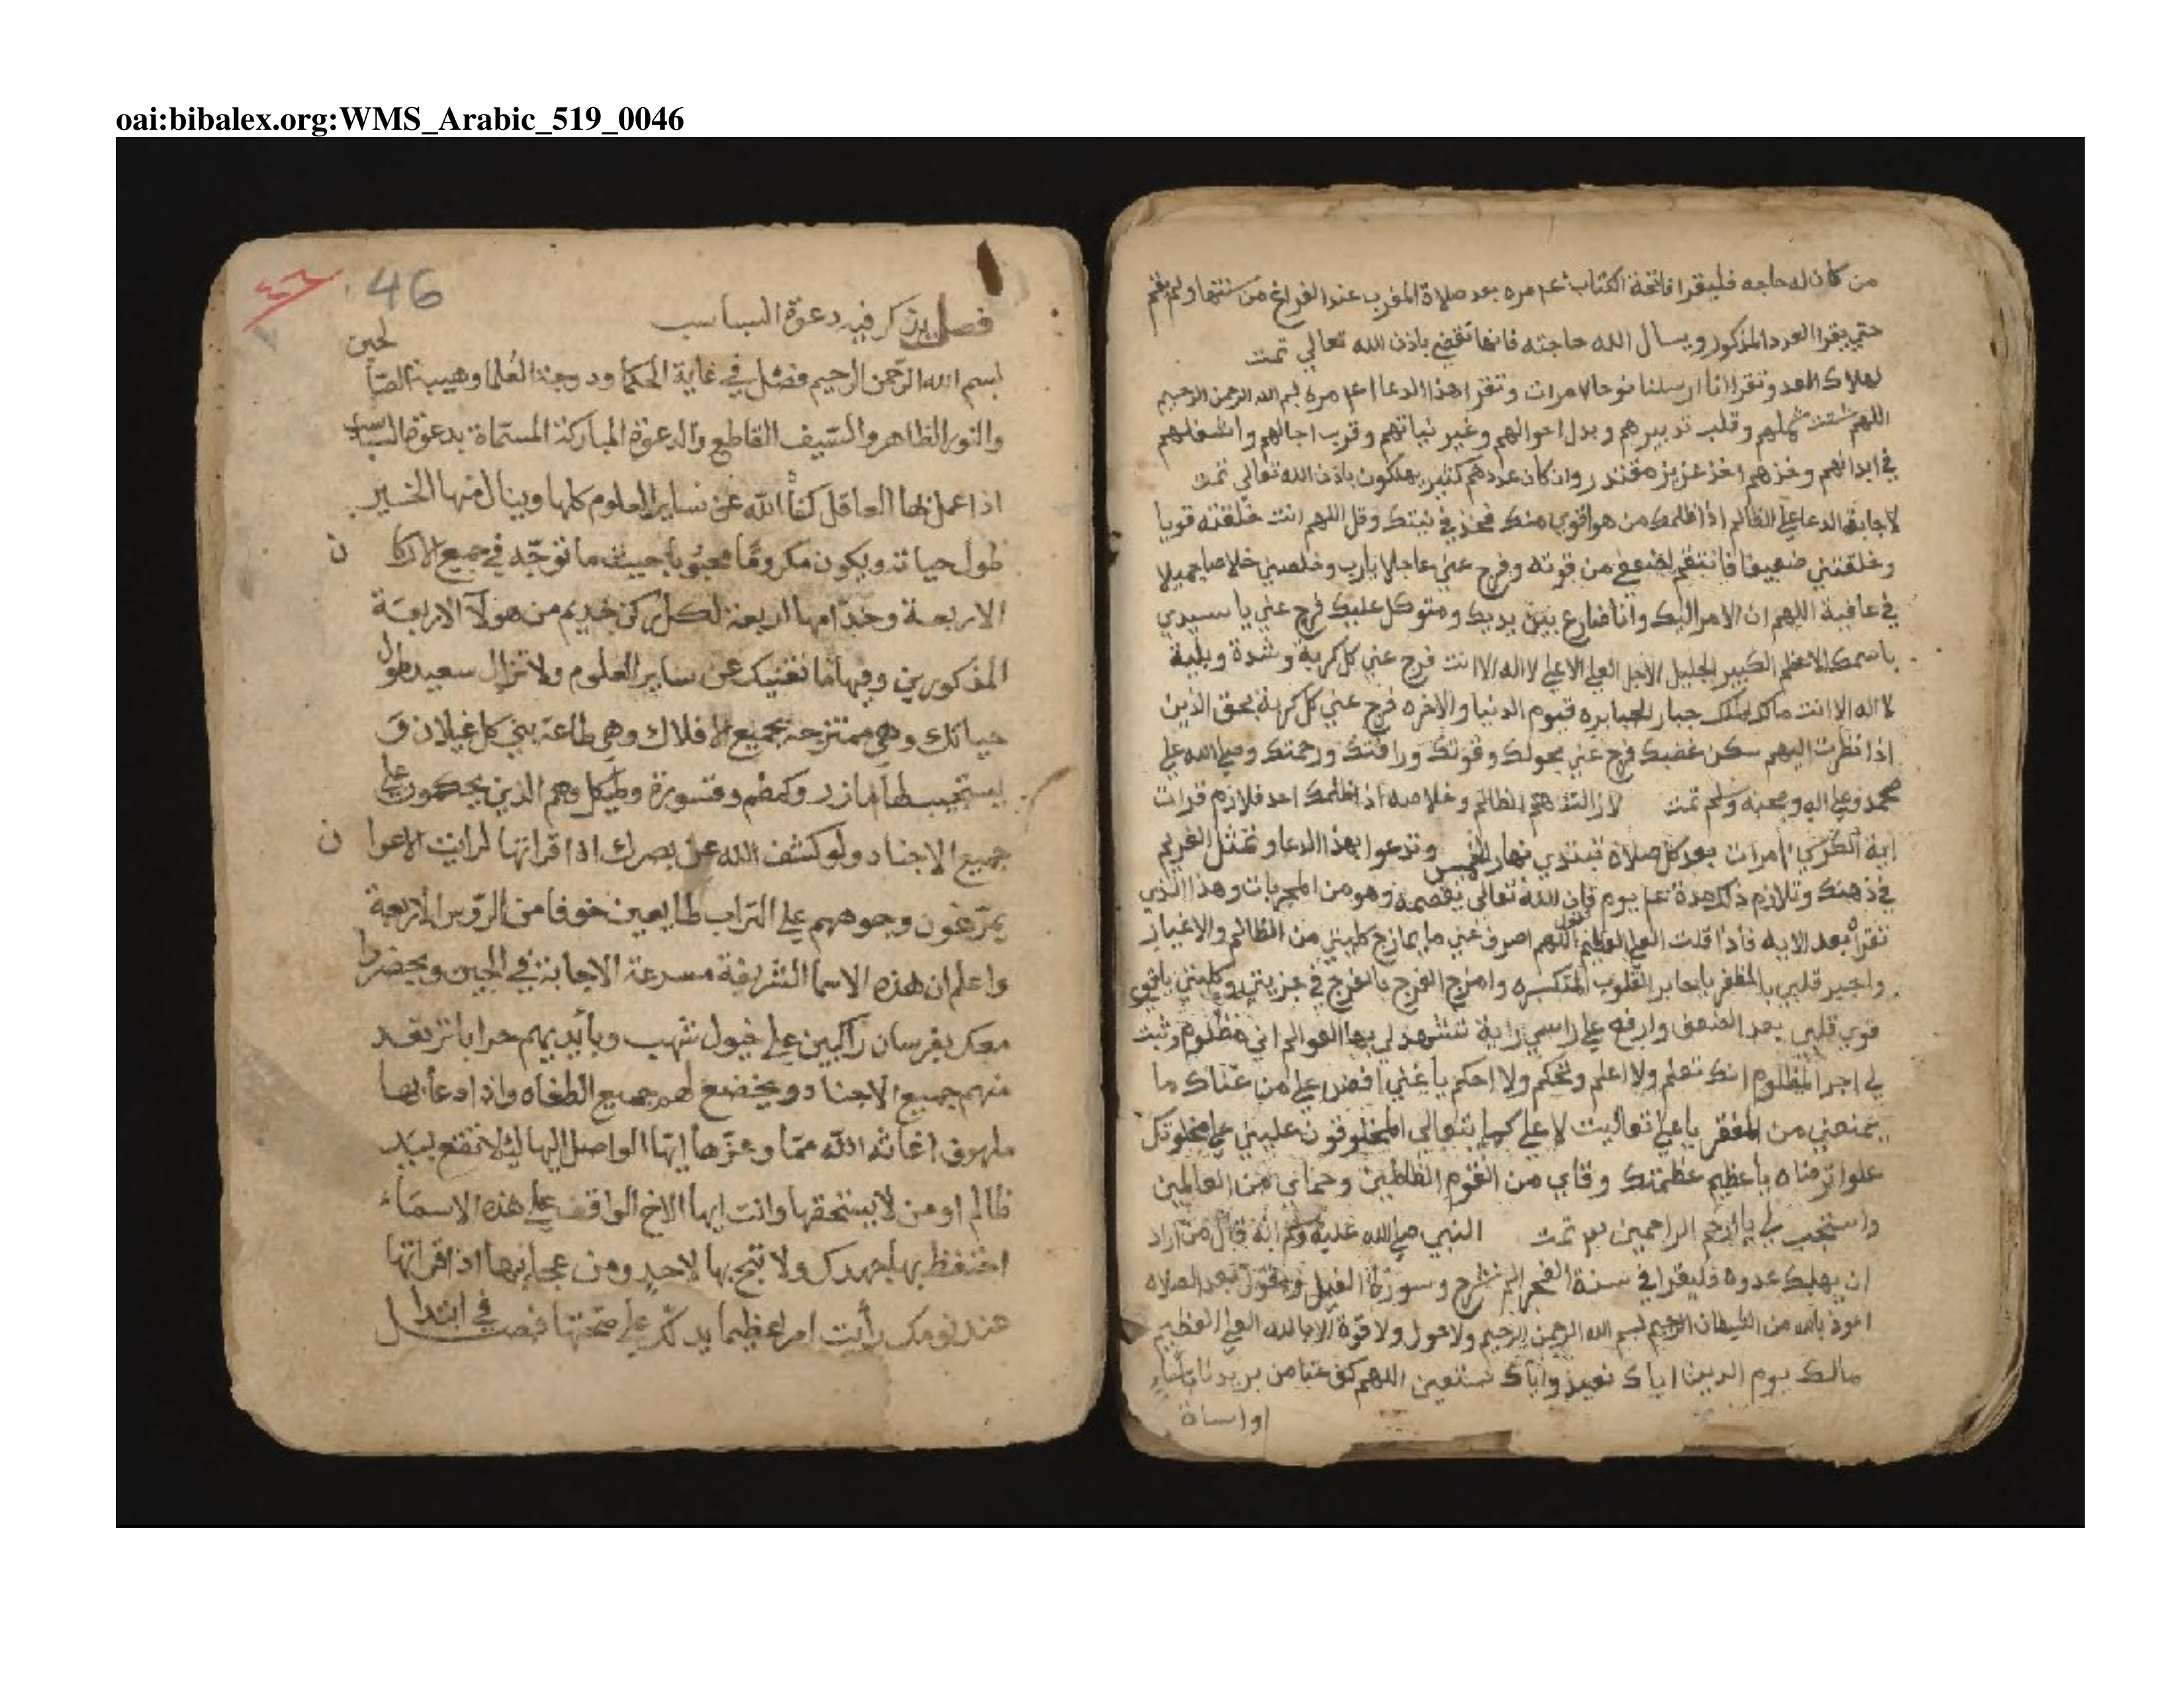 oai:bibalex.org:WMS_Arabic_519_0046
من كان له حاجه فليقرا فاتحة الكتاب مره بعد صلاة المغرب عند الفراغ من سنتها ولم يقم
حتي يقرا العدد المذكور ويسال الله حاجته فانها تقضي باذن الله تعالي تمت
لهلاك العدو تقرا انا ارسلنا نوحا مرات وتقرا هذا الدعا مره بسم الله الرحمن الرحيم
اللهم شتت شملهم وقلب تدبيرهم وبدل احوالهم وغير نياتهم وقرب اجالهم واشغلهم
في ابدانهم وخذهم اخذ عزيز مقتدر وان كان عددهم كثير يهلكون باذن الله تعالي تمت
لاجابة الدعا علي الظالم اذا ظلمك من هو اقوي منك فخذ في نيتك وقل اللهم انت خلقته قويا
وخلقتني ضعيفا فانتقم لضعفي من قوته وفرج عني عاجلا يارب وخلصني خلاصا جميلا
في عافية اللهم ان الامر اليك وانا ضارع بين يديك ومتوكل عليك فرج عني يا سيدي
باسمك الاعظم الكبير الجليل الاجل العلي الاعلي لا اله الا انت فرج عني كل كربة وشدة وبلية
لا اله الا انت جبار الجبابره قيوم الدنيا والاخره فرج عني كل كربة بحق الذين
اذا نظرت اليهم سكن غضبك فرج عني بحولك وقوتك ورافتك ورحمتك وصلي الله علي
محمد وعلي اله وصحبه وسلم تمت لازالت هم الظالم وخلاصه اذا ظلمك احد فلازم قرات
اية الكرسي مرات بعد كل صلاة تبتدي نهار الخميس وتدعوا بهذا الدعا وتمثل الغريم
في ذهنك وتلازم ذلك مدة يوم فان الله تعالي يقصمه وهو من المجربات وهذا الذي
تقراه بعد الايه فاذا قلت العلي العظيم تقول اللهم اصرف عني ما يمازج كليتي من الظالم والاغيار
واجبر قلبي بالظفر يا جابر القلوب المنكسره وامزج الفرج بالفرج في وكليتي يا قوي
قوي قلبي بعد الضعف وارفع علي راسي راية تشهد لي بها العوالم اني مظلوم وثبت
لي اجر المظلوم انك تعلم ولا اعلم وتحكم ولا احكم يا غني افض علي من غناك ما
يمنعني من الفقر يا علي تعاليت لا علي المخلوقون علي
علوا ترضاه يا عظيم عظمتك وقاي من القوم الظالمين وحماي من العالمين
واستجب لي يا ارحم الراحمين تمت النبي صلي الله عليه وسلم انه قال من اراد
ان يهلك عدوه فليقرا في سنة الفجر الم نشرح وسورة الفيل ويقول بعد الصلاه
اعوذ بالله من الشيطان الرجيم بسم الله الرحمن الرحيم ولا حول ولا قوة الا بالله العلي العظيم
مالك يوم الدين اياك نعبد واياك نستعين اللهم كف عنا من يريدنا
او اساة
46
٤٦
فصل يذكر فيه دعوة السباسب
بسم الله الرحمن الرحيم فصل في غاية الحكما ودوحة العلما وهيبة الصالحين
والنور الظاهر والسيف القاطع والدعوة المباركة المسماة بدعوة السباسب
اذا عمل بها العاقل كفاه الله عن ساير العلوم كلها وينال منها الخير
طول حياته ويكون مكروما محبوبا حيث ما توجه في جميع الاركان
الاربعة وخدامها اربعة لكل ركن خديم من هولا الاربعة
المذكورين وفيها ما تغنيك عن ساير العلوم ولا تزال سعيد طول
حياتك وهي ممتزجة بجميع الافلاك وهي طاعة بني كل غيلان و
يستجيب طا مازر وكمطم وقسورة وطيكل وهم الذين يحكمون علي
جميع الاجناد ولو كشف الله عن بصرك اذا قراتها لرايت الاعوان
يمرغون وجوههم علي التراب طايعين خوفا من الروس الاربعة
واعلم ان هذه الاسما الشريفة مسرعة الاجابة في الحين ويحضروا
معك بفرسان راكبين علي خيول شهب وبايديهم حرابا ترتعد
منهم جميع الاجناد ويخضع لهم جميع الطغاه واذا دعا بها
ملهوف اغاثه الله ايها الواصل اليها ليلا تقع بيد
ظالم او من لا يستحقها وانت ايها الاخ الواقف علي هذه الاسماء
احتفظ بها بجهدك ولا تبح بها لاحد ومن عجايبها اذا قراتها
عند نومك رأيت امرا عظيما يدلك علي صحتها فصل في ابتدا